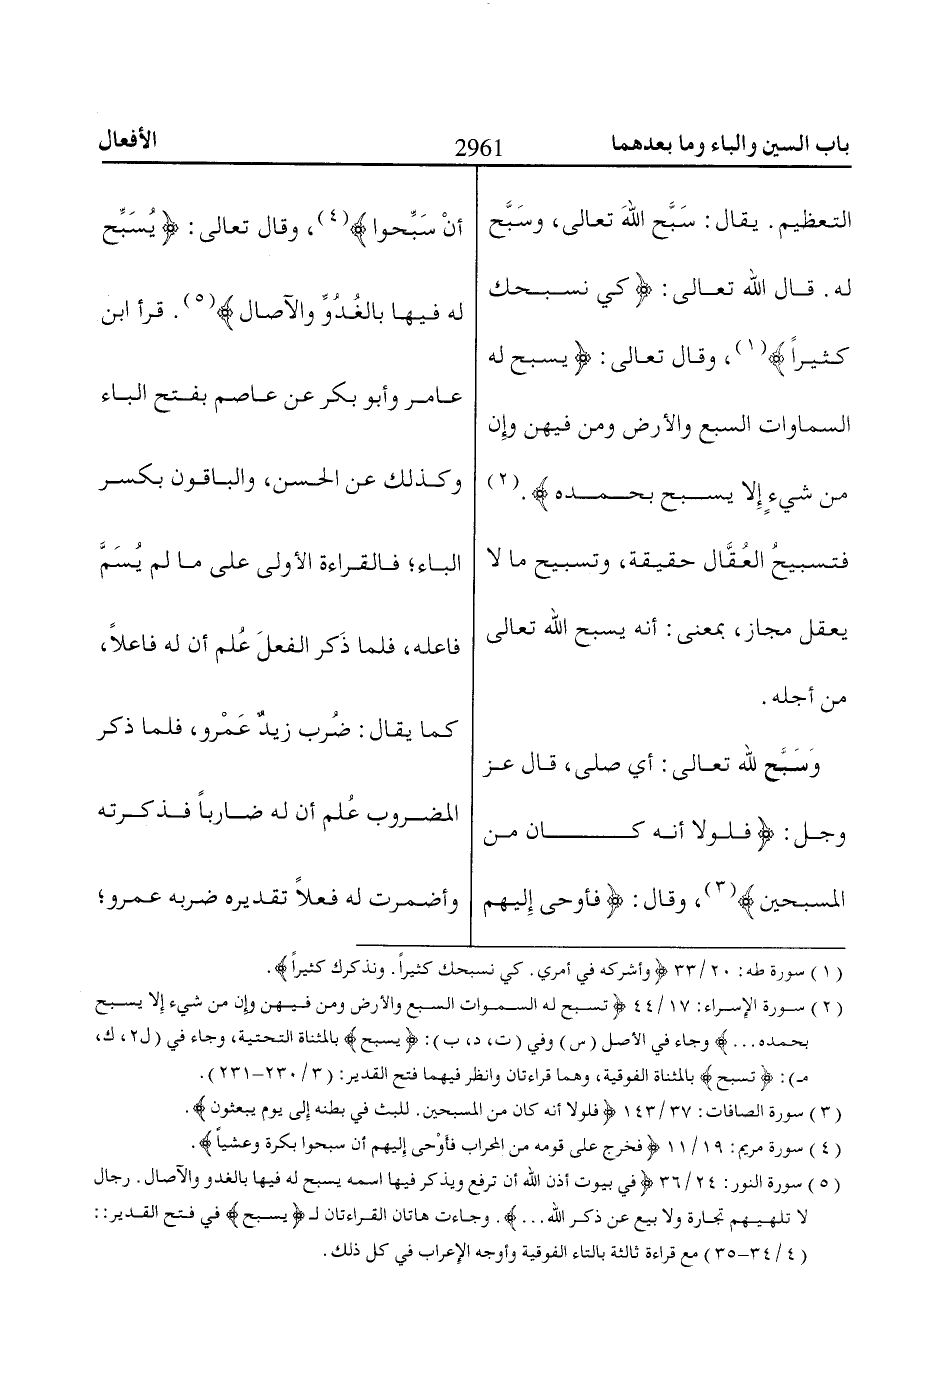 باب السين والباء وما بعدهما 2961 الأفعال
التعظيم. يقال: سَبَّح اللهَ تعالى، وسَبَّح
له. قال الله تعالى: ﴿كي نسبحك
كثيراً﴾(١)، وقال تعالى: ﴿يسبح له
السماوات السبع والأرض ومن فيهن وإن
من شيءٍ إلا يسبح بحمده﴾.(٢)
فتسبيحُ العُقَّال حقيقة، وتسبيح ما لا
يعقل مجاز، بمعنى: أنه يسبح الله تعالى
من أجله.
وَسَبَّح لله تعالى: أي صلى، قال عز
وجل: ﴿فلولا أنه كان من
المسبحين﴾(٣)، وقال: ﴿فأوحى إليهم
أنْ سَبِّحوا﴾(٤)، وقال تعالى: ﴿يُسَبِّح
له فيها بالغُدُوِّ والآصال﴾(٥). قرأ ابن
عامر وأبو بكر عن عاصم بفتح الباء
وكذلك عن الحسن، والباقون بكسر
الباء؛ فالقراءة الأولى على ما لم يُسَمَّ
فاعله، فلما ذَكر الفعلَ عُلم أن له فاعلاً،
كما يقال: ضُرب زيدٌ عَمْرو، فلما ذكر
المضروب عُلم أن له ضارباً فذكرته
وأضمرت له فعلاً تقديره ضربه عمرو؛
(١) سورة طه: ٢٠/ ٣٣ ﴿وأشركه في أمري. كي نسبحك كثيراً. ونذكرك كثيراً﴾.
(٢) سورة الإسراء: ١٧/ ٤٤ ﴿تسبح له السموات السبع والأرض ومن فيهن وإن من شيء إلا يسبح
بحمده...﴾ وجاء في الأصل (س) وفي (ت، د، ب): ﴿يسبح﴾ بالمثناة التحتية، وجاء في (ل٢، ك،
م): ﴿تسبح﴾ بالمثناة الفوقية، وهما قراءتان وانظر فيهما فتح القدير: (٣/ ٢٣٠-٢٣١).
(٣) سورة الصافات: ٣٧/ ١٤٣ ﴿فلولا أنه كان من المسبحين. للبث في بطنه إلى يوم يبعثون﴾.
(٤) سورة مريم: ١٩/ ١١ ﴿فخرج على قومه من المحراب فأوْحى إليهم أن سبحوا بكرة وعشياً﴾.
(٥) سورة النور: ٢٤/ ٣٦ ﴿في بيوت أذن الله أن ترفع ويذكر فيها اسمه يسبح له فيها بالغدو والآصال. رجال
لا تلهيهم تجارة ولا بيع عن ذكر الله...﴾. وجاءت هاتان القراءتان لـ﴿يسبح﴾ في فتح القدير::
(٤/ ٣٤-٣٥) مع قراءة ثالثة بالتاء الفوقية وأوجه الإعراب في كل ذلك.